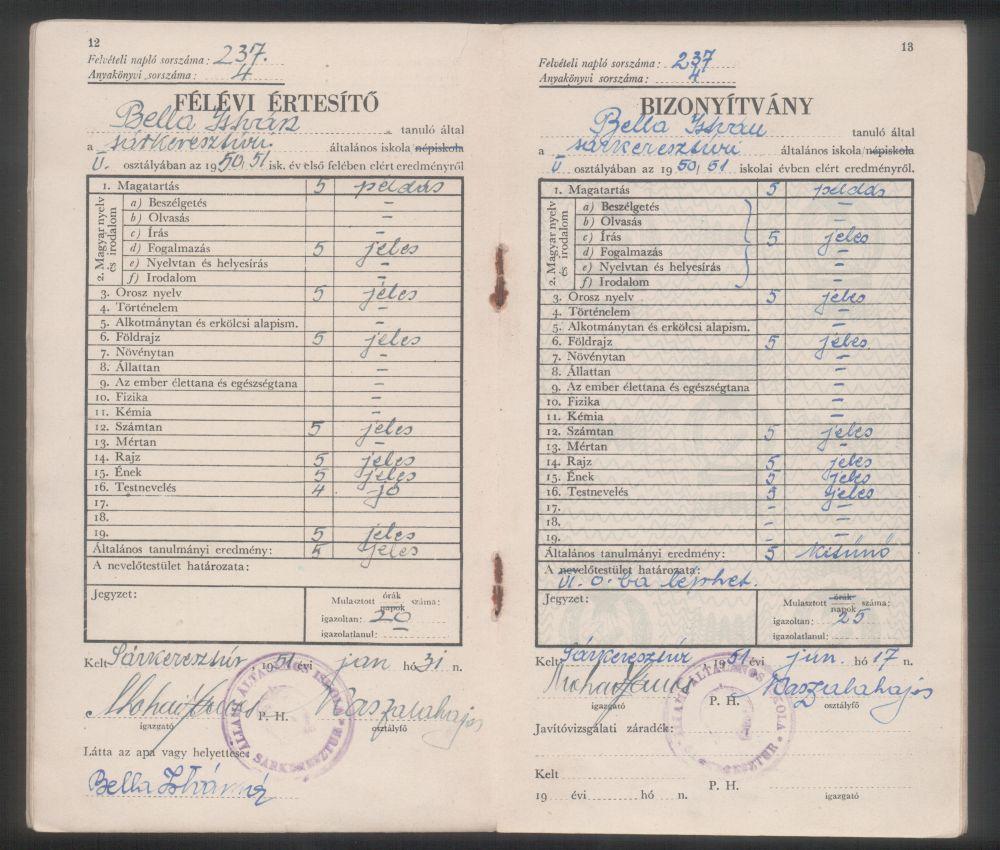 12
Felvételi napló sorszáma: 237.
Anyakönyvi sorszáma: 4
FÉLÉVI ÉRTESÍTŐ
Bella István tanuló által
a sárkeresztúri általános iskola népiskola
V. osztályában az 1950/51 isk. év első felében elért eredményről
1. Magatartás 5 példás
2. Magyar nyelv és irodalom
a) Beszélgetés —
b) Olvasás —
c) Írás —
d) Fogalmazás 5 jeles
e) Nyelvtan és helyesírás —
f) Irodalom —
3. Orosz nyelv 5 jeles
4. Történelem —
5. Alkotmánytan és erkölcsi alapism. —
6. Földrajz 5 jeles
7. Növénytan —
8. Állattan —
9. Az ember élettana és egészségtana —
10. Fizika —
11. Kémia —
12. Számtan 5 jeles
13. Mértan —
14. Rajz 5 jeles
15. Ének 5 jeles
16. Testnevelés 4. jó
17.
18.
19. 5 jeles
Általános tanulmányi eredmény: 5 jeles
A nevelőtestület határozata:
Jegyzet:
Mulasztott órák napok száma:
igazoltan: 20
igazolatlanul: —
Kelt Sárkeresztúr, 1951 évi jan. hó 31 n.
P. H.
igazgató
osztályfő
ÁLLAMI ÁLTALÁNOS ISKOLA * SÁRKERESZTÚR *
Látta az apa vagy helyettese:
Bella Istvánné
13
Felvételi napló sorszáma: 237
Anyakönyvi sorszáma: 4
BIZONYÍTVÁNY
Bella István tanuló által
a sárkeresztúri általános iskola/népiskola
V. osztályában az 1950/51 iskolai évben elért eredményről.
1. Magatartás 5 példás
2. Magyar nyelv és irodalom
a) Beszélgetés —
b) Olvasás —
c) Írás 5 jeles
d) Fogalmazás —
e) Nyelvtan és helyesírás —
f) Irodalom —
3. Orosz nyelv 5 jeles
4. Történelem —
5. Alkotmánytan és erkölcsi alapism. —
6. Földrajz 5 jeles.
7. Növénytan —
8. Állattan —
9. Az ember élettana és egészségtana —
10. Fizika —
11. Kémia —
12. Számtan 5 jeles
13. Mértan —
14. Rajz 5 jeles
15. Ének 5 jeles
16. Testnevelés 5 jeles
17. — —
18. — —
19. — —
Általános tanulmányi eredmény: 5 kitünő
A nevelőtestület határozata:
VI. o.-ba léphet.
Jegyzet:
Mulasztott órák napok száma:
igazoltan: 25
igazolatlanul: —
Kelt Sárkeresztúr, 1951 évi jun. hó 17 n.
P. H.
igazgató
osztályfő
ÁLLAMI ÁLTALÁNOS ISKOLA
Javítóvizsgálati záradék:
Kelt
19 évi hó n.
P. H.
igazgató